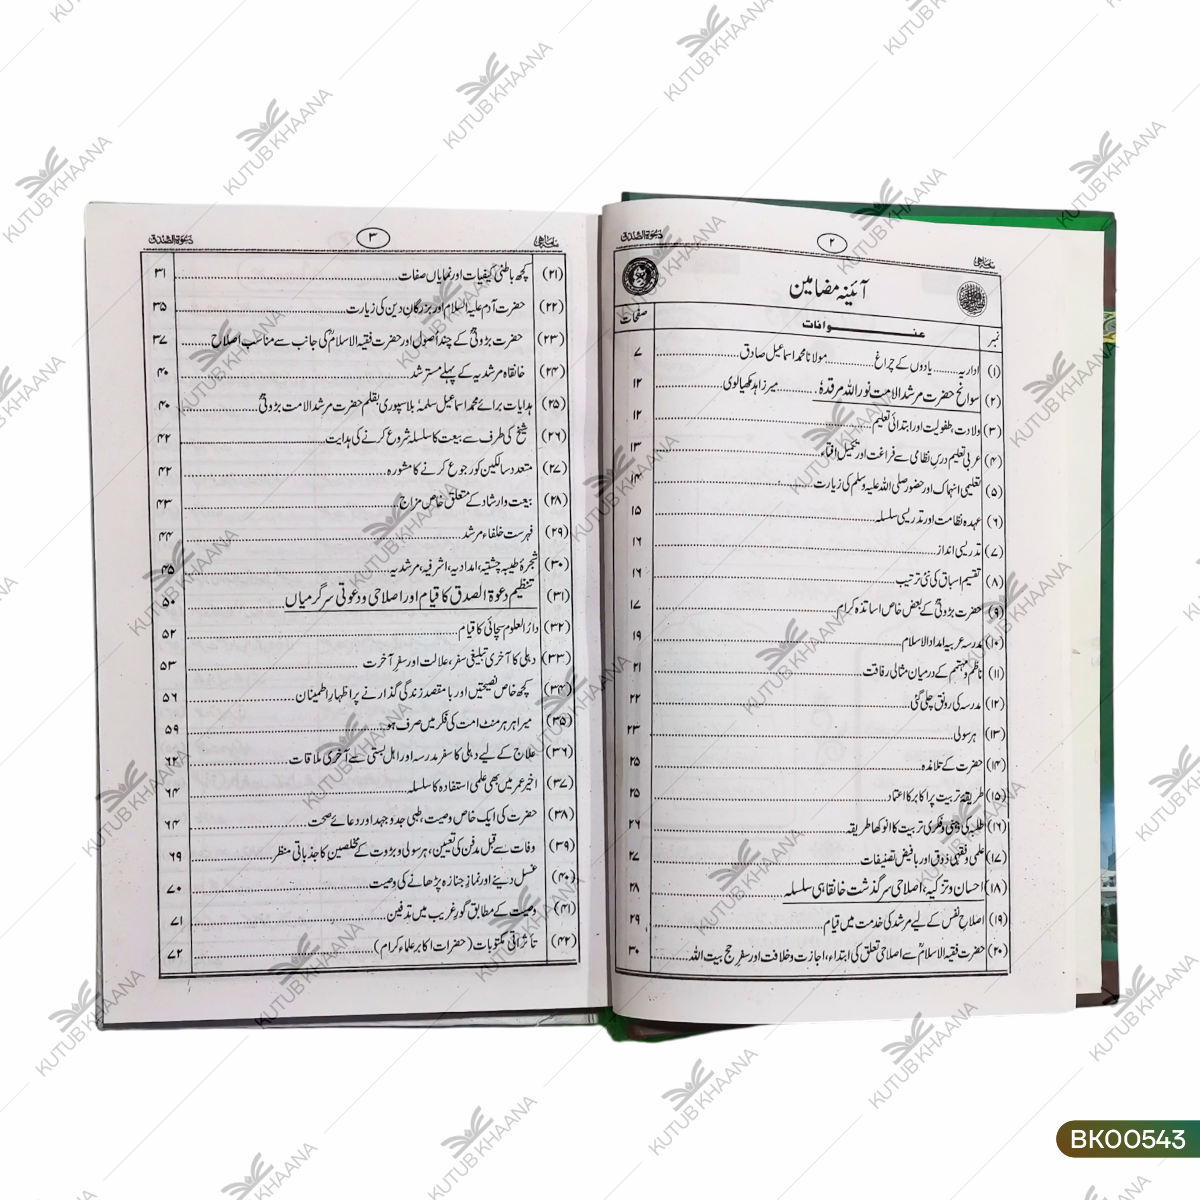 دعوۃ الصدق ۲ سہ ماہی
آئینہ مضامین
نمبر عنوانات صفحات
(۱) اداریہ......یادوں کے چراغ............مولانا محمد اسماعیل صادق ۷
(۲) سوانح حضرت مرشد الامت نور اللہ مرقدہٗ............میر زاہد مکھیالوی ۱۲
(۳) ولادت، طفولیت اور ابتدائی تعلیم ۱۲
(۴) عربی تعلیم درس نظامی سے فراغت اور تکمیل افتاء ۱۳
(۵) تعلیمی انہماک اور حضور صلی اللہ علیہ وسلم کی زیارت ۱۴
(۶) عہدہ نظامت اور تدریسی سلسلہ ۱۵
(۷) تدریسی انداز ۱۶
(۸) تقسیم اسباق کی نئی ترتیب ۱۶
(۹) حضرت بڑوتیؒ کے بعض خاص اساتذہ کرام ۱۷
(۱۰) مدرسہ عربیہ امداد الاسلام ۱۹
(۱۱) ناظم و مہتمم کے درمیان مثالی رفاقت ۲۱
(۱۲) مدرسہ کی رونق چلی گئی ۲۲
(۱۳) ہرسولی ۲۳
(۱۴) حضرت کے تلامذہ ۲۵
(۱۵) طریقۂ تربیت پر اکابر کا اعتماد ۲۵
(۱۶) طلبہ کی دینی و فکری تربیت کا انوکھا طریقہ ۲۶
(۱۷) علمی و فقہی ذوق اور با فیض تصنیفات ۲۷
(۱۸) احسان و تزکیہ، اصلاحی سرگذشت خانقاہی سلسلہ ۲۸
(۱۹) اصلاح نفس کے لیے مرشد کی خدمت میں قیام ۲۹
(۲۰) حضرت فقیہ الاسلامؒ سے اصلاحی تعلق کی ابتداء، اجازت و خلافت اور سفر حج بیت اللہ ۳۰
دعوۃ الصدق ۳ سہ ماہی
(۲۱) کچھ باطنی کیفیات اور نمایاں صفات ۳۱
(۲۲) حضرت آدم علیہ السلام اور بزرگان دین کی زیارت ۳۵
(۲۳) حضرت بڑوتیؒ کے چند اُصول اور حضرت فقیہ الاسلامؒ کی جانب سے مناسب اصلاح ۳۷
(۲۴) خانقاہ مرشدیہ کے پہلے مسترشد ۴۰
(۲۵) ہدایات برائے محمد اسماعیل سلمہٗ بلاسپوری بقلم حضرت مرشد الامت بڑوتیؒ ۴۰
(۲۶) شیخ کی طرف سے بیعت کا سلسلہ شروع کرنے کی ہدایت ۴۲
(۲۷) متعدد سالکین کو رجوع کرنے کا مشورہ ۴۲
(۲۸) بیعت و ارشاد کے متعلق خاص مزاج ۴۳
(۲۹) فہرست خلفاء مرشد ۴۴
(۳۰) شجرۂ طیبہ چشتیہ، امدادیہ، اشرفیہ، مرشدیہ ۴۵
(۳۱) تنظیم دعوۃ الصدق کا قیام اور اصلاحی و دعوتی سرگرمیاں ۵۰
(۳۲) دارُ العلوم سچائی کا قیام ۵۲
(۳۳) دہلی کا آخری تبلیغی سفر، علالت اور سفر آخرت ۵۳
(۳۴) کچھ خاص نصیحتیں اور با مقصد زندگی گذارنے پر اظہارِ اطمینان ۵۶
(۳۵) میرا ہر ہر منٹ امت کی فکر میں صرف ہو ۵۹
(۳۶) علاج کے لیے دہلی کا سفر مدرسہ اور اہل بستی سے آخری ملاقات ۶۲
(۳۷) اخیر عمر میں بھی علمی استفادہ کا سلسلہ ۶۴
(۳۸) حضرت کی ایک خاص وصیت، طبی جدوجہد اور دعائے صحت ۶۴
(۳۹) وفات سے قبل مدفن کی تعیین، ہرسولی و بڑوت کے مخلصین کا جذباتی منظر ۶۹
(۴۰) غسل دینے اور نماز جنازہ پڑھانے کی وصیت ۷۰
(۴۱) وصیت کے مطابق گور غریب میں تدفین ۷۱
(۴۲) تأثراتی مکتوبات (حضرات اکابر علماء کرام) ۷۲
KUTUB KHAANA
BK00543